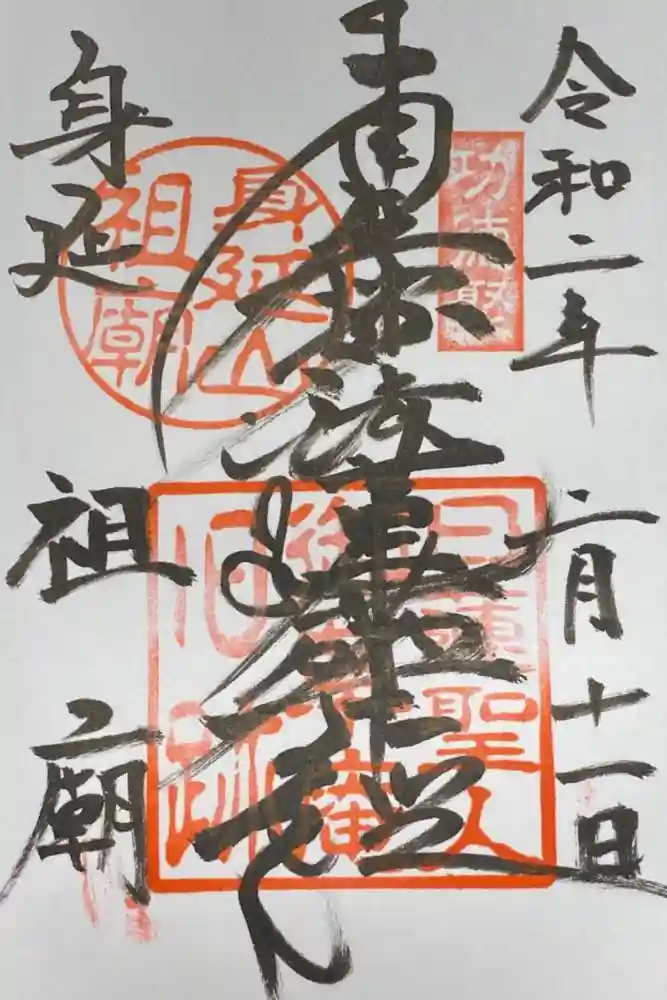 令和二年 二月十一日
南無妙法蓮華経
身延 祖廟
功徳聚
身延山祖廟
日蓮聖人御草庵旧跡